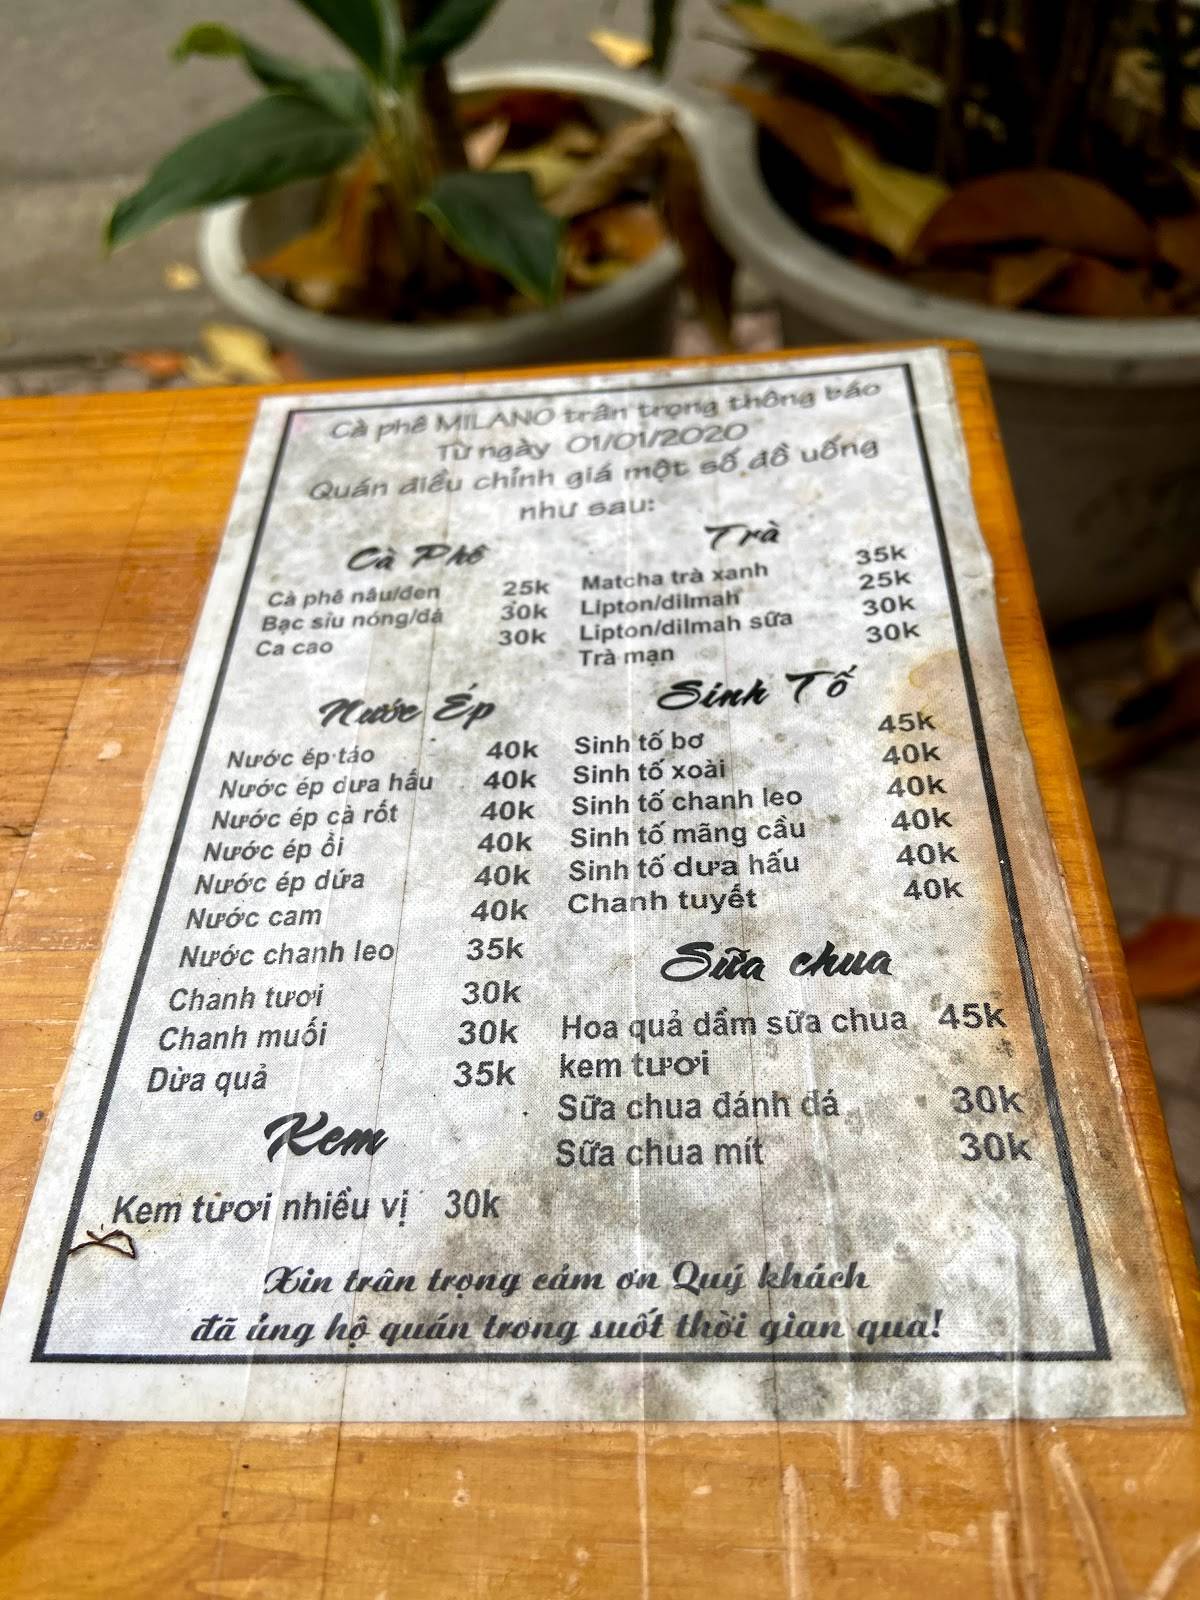 Cà phê MILANO trân trọng thông báo
Từ ngày 01/01/2020
Quán điều chỉnh giá một số đồ uống
như sau:
Cà Phê
Cà phê nâu/đen 25k
Bạc sỉu nóng/đá 30k
Ca cao 30k
Trà
Matcha trà xanh 35k
Lipton/dilmah 25k
Lipton/dilmah sữa 30k
Trà mạn 30k
Nước Ép
Nước ép táo 40k
Nước ép dưa hấu 40k
Nước ép cà rốt 40k
Nước ép ổi 40k
Nước ép dứa 40k
Nước cam 40k
Nước chanh leo 35k
Chanh tươi 30k
Chanh muối 30k
Dừa quả 35k
Sinh Tố
Sinh tố bơ 45k
Sinh tố xoài 40k
Sinh tố chanh leo 40k
Sinh tố mãng cầu 40k
Sinh tố dưa hấu 40k
Chanh tuyết 40k
Sữa chua
Hoa quả dầm sữa chua 45k
kem tươi
Sữa chua đánh đá 30k
Sữa chua mít 30k
Kem
Kem tươi nhiều vị 30k
Xin trân trọng cảm ơn Quý khách
đã ủng hộ quán trong suốt thời gian qua!